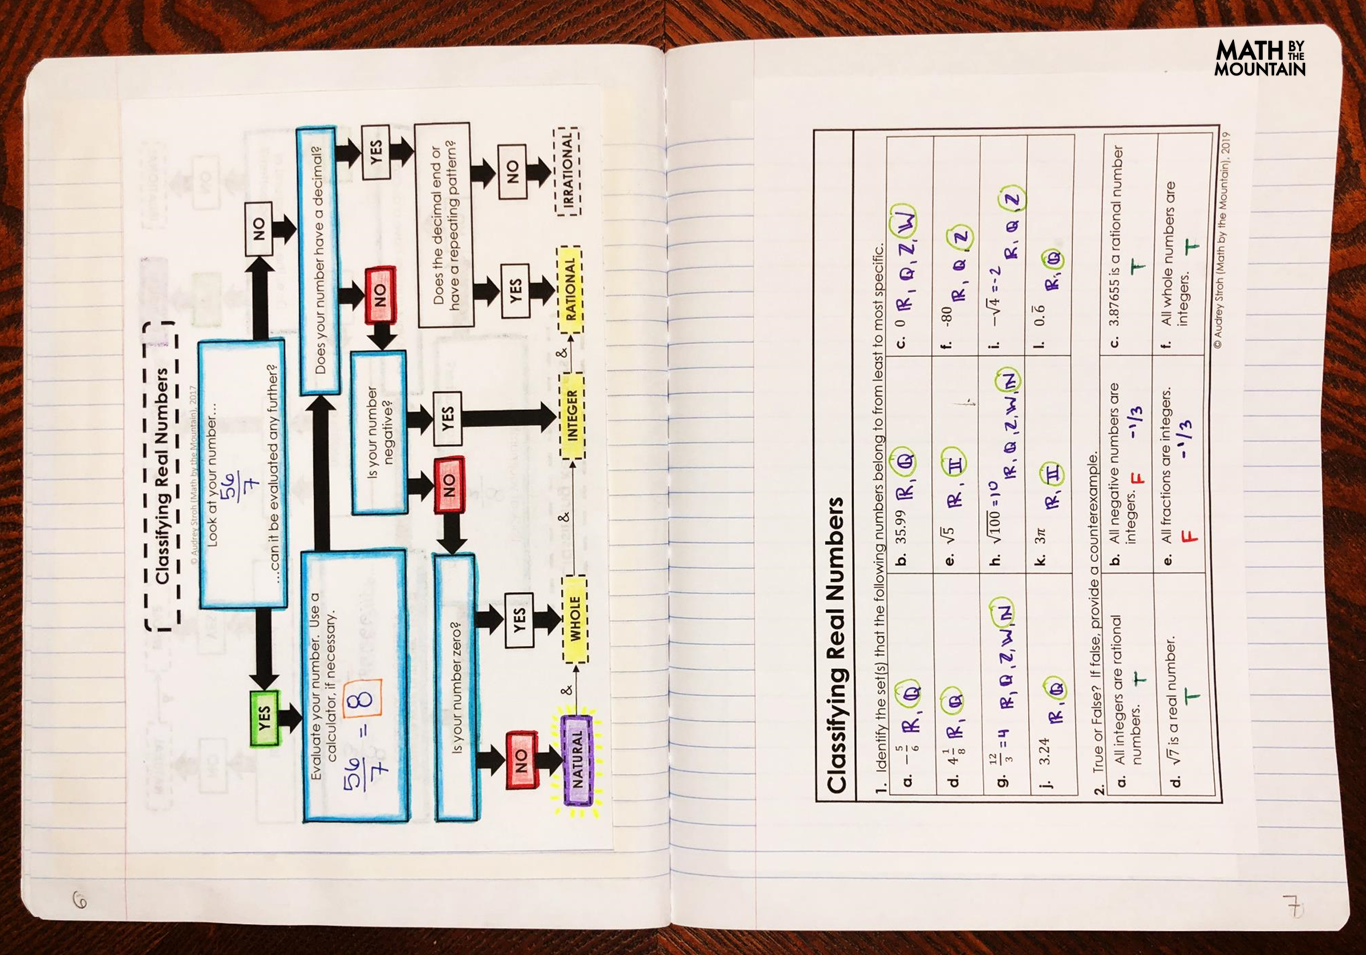 MATH BY THE MOUNTAIN
Classifying Real Numbers
© Audrey Stroh (Math by the Mountain), 2017
Look at your number...
56/7
...can it be evaluated any further?
YES
NO
Evaluate your number. Use a
calculator, if necessary.
56/7 = 8
Does your number have a decimal?
NO
YES
Is your number
negative?
NO
YES
Does the decimal end or
have a repeating pattern?
YES
NO
Is your number zero?
NO
YES
NATURAL & WHOLE & INTEGER & RATIONAL IRRATIONAL
6
Classifying Real Numbers
1. Identify the set(s) that the following numbers belong to from least to most specific.
a. -5/6 ℝ, ℚ
b. 35.99 ℝ, ℚ
c. 0 ℝ, ℚ, ℤ, W
d. 4 1/8 ℝ, ℚ
e. √5 ℝ, 𝕀
f. -80 ℝ, ℚ, ℤ
g. 12/3 = 4 ℝ, ℚ, ℤ, W, ℕ
h. √100 = 10 ℝ, ℚ, ℤ, W, ℕ
i. -√4 = -2 ℝ, ℚ, ℤ
j. 3.24 ℝ, ℚ
k. 3π ℝ, 𝕀
l. 0.6̅ ℝ, ℚ
2. True or False? If false, provide a counterexample.
a. All integers are rational
numbers. T
b. All negative numbers are
integers. F -1/3
c. 3.87655 is a rational number
T
d. √7 is a real number.
T
e. All fractions are integers.
F -1/3
f. All whole numbers are
integers. T
© Audrey Stroh (Math by the Mountain), 2019
7